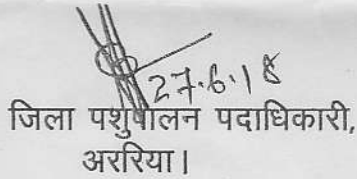 27.6.18
जिला पशुपालन पदाधिकारी,
अररिया।